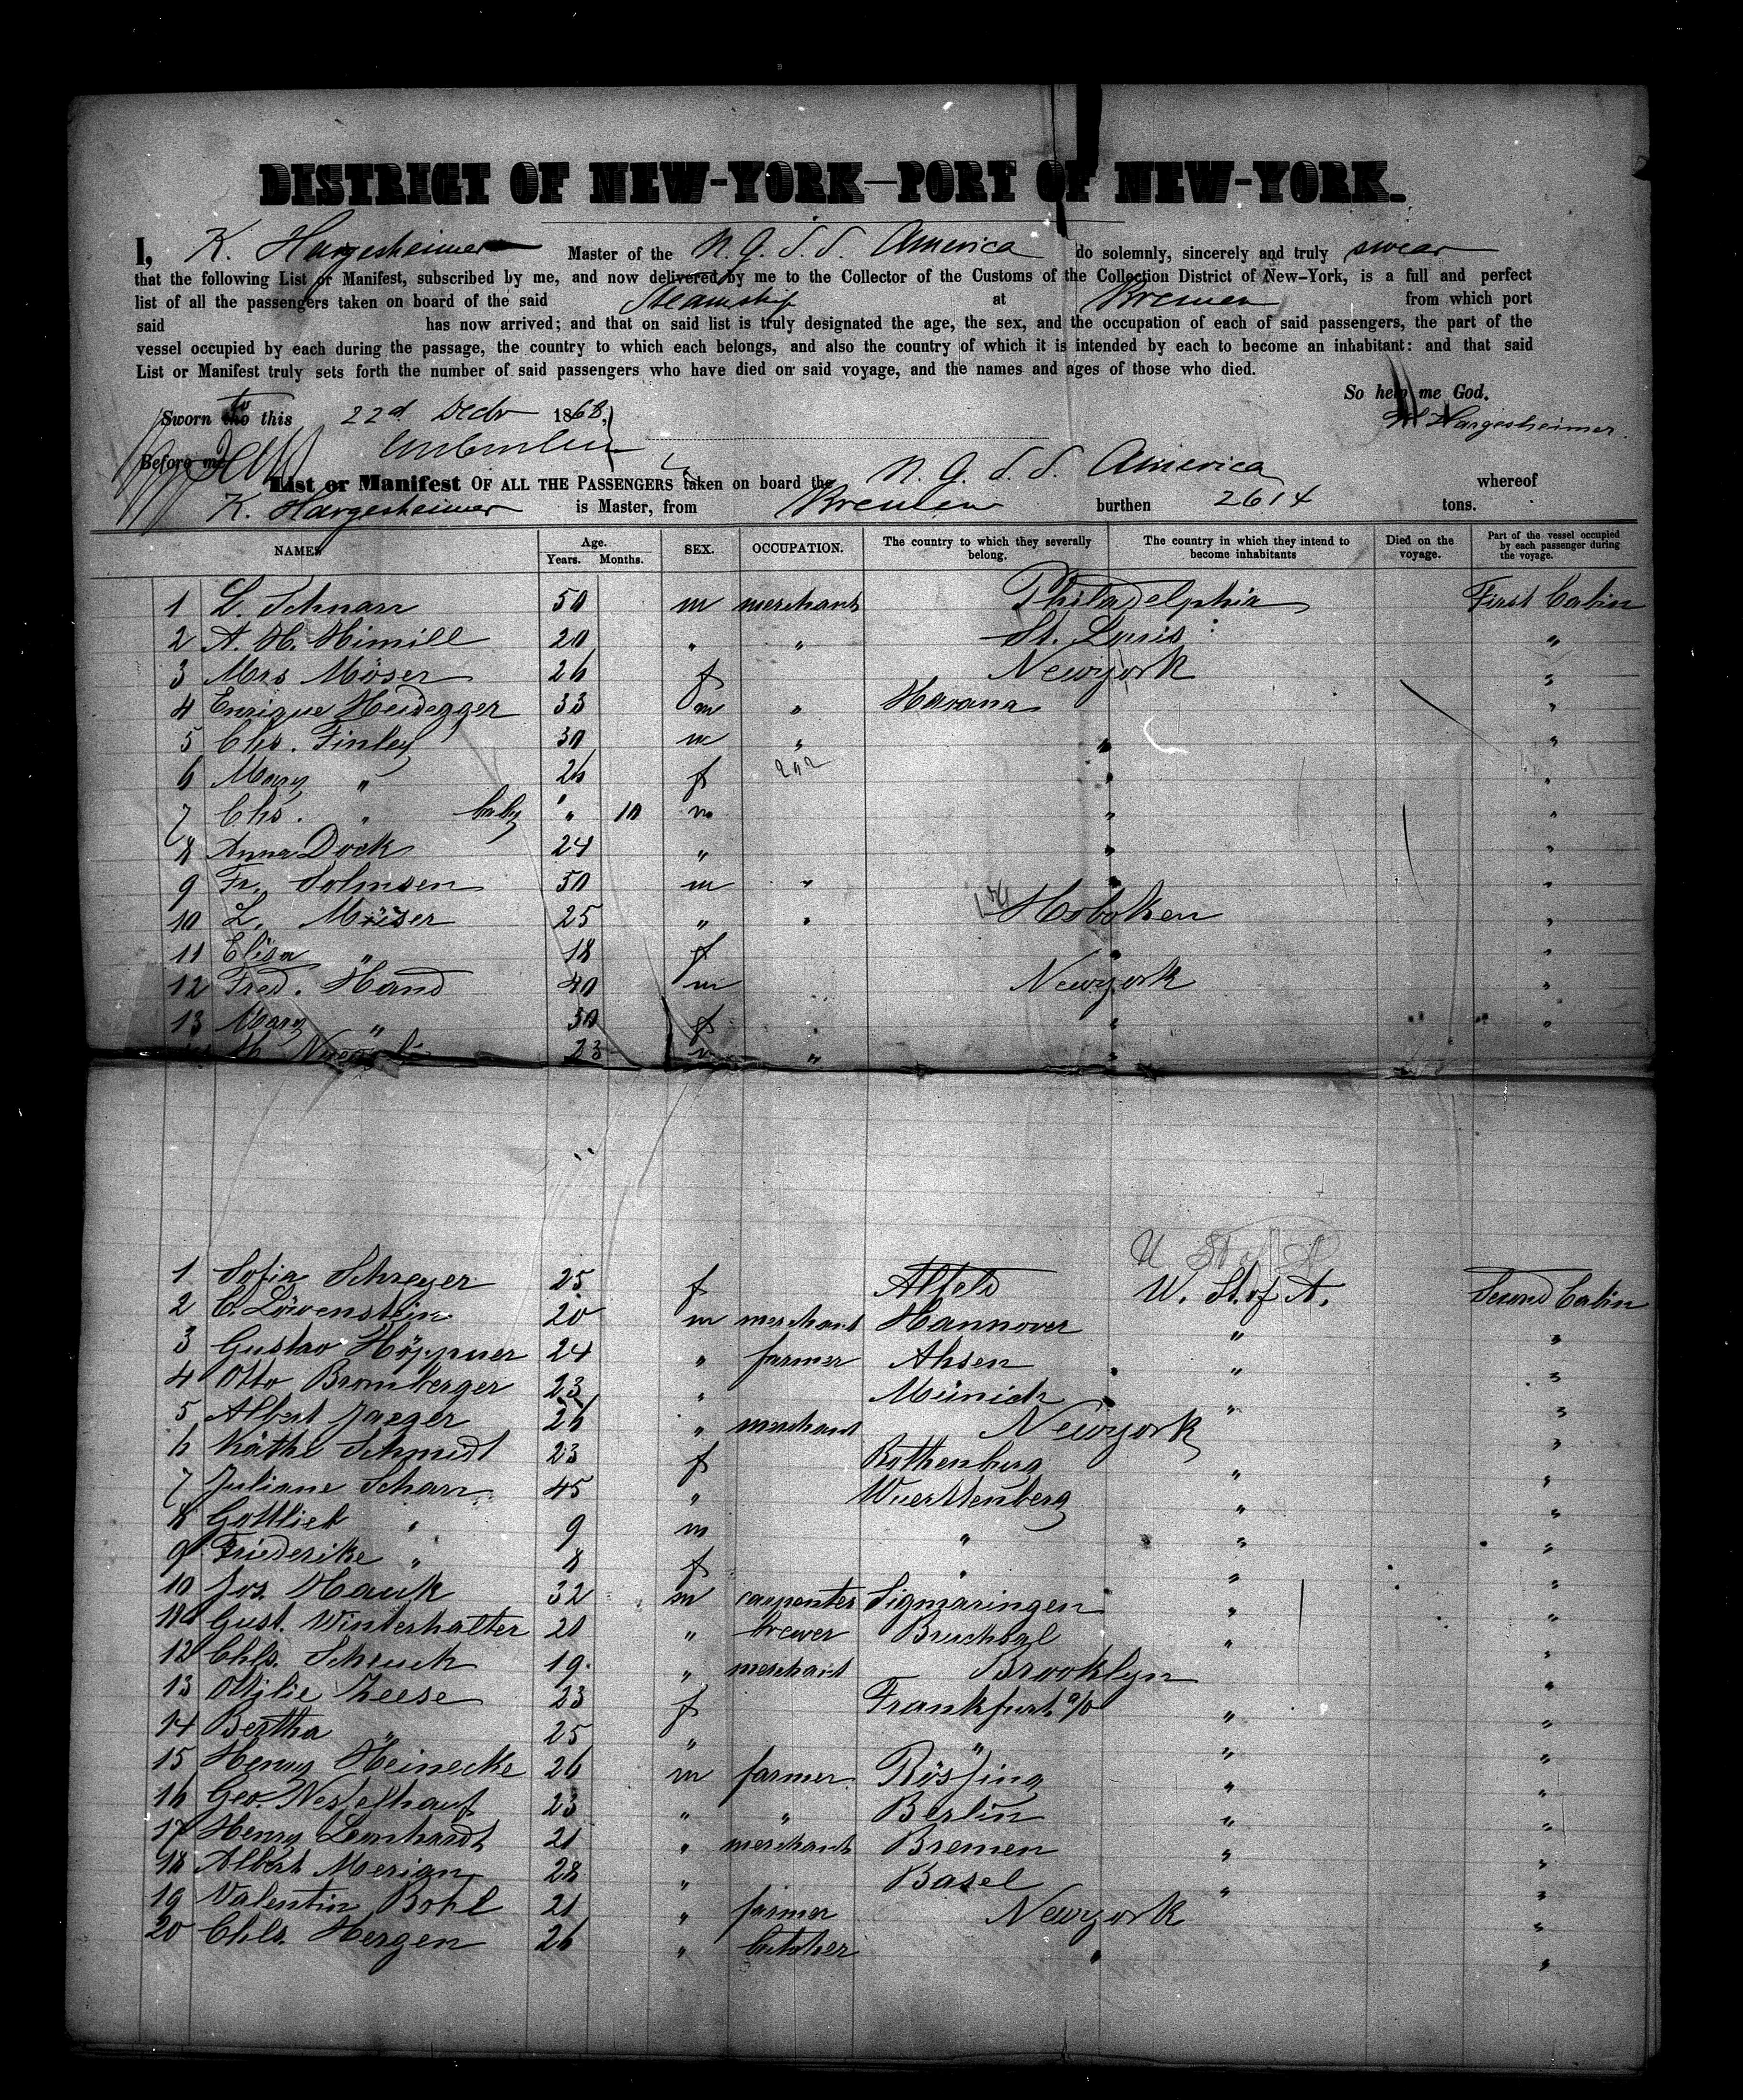 DISTRICT OF NEW-YORK—PORT OF NEW-YORK.
I, K. Hargesheimer Master of the N. G. S. S. America do solemnly, sincerely and truly swear
that the following List or Manifest, subscribed by me, and now delivered by me to the Collector of the Customs of the Collection District of New-York, is a full and perfect
list of all the passengers taken on board of the said Steamship at Bremen from which port
said has now arrived; and that on said list is truly designated the age, the sex, and the occupation of each of said passengers, the part of the
vessel occupied by each during the passage, the country to which each belongs, and also the country of which it is intended by each to become an inhabitant: and that said
List or Manifest truly sets forth the number of said passengers who have died on said voyage, and the names and ages of those who died.
So help me God.
Sworn to this 22d Decbr 1868,
K Hargesheimer.
Before me
List or Manifest OF ALL THE PASSENGERS taken on board the N. G. S. S. America whereof
K. Hargesheimer is Master, from Bremen burthen 2614 tons.
NAMES Age. Years. Months. SEX. OCCUPATION. The country to which they severally belong. The country in which they intend to become inhabitants Died on the voyage. Part of the vessel occupied by each passenger during the voyage.
1 L. Schnarr 50 m merchant Philadelphia First Cabin
2 A. H. Himill 20 " " St. Louis "
3 Mrs Möser 26 f Newyork "
4 Enrique Heidegger 33 m " Havana "
5 Chs. Finley 30 m " " "
6 Mary " 26 f " "
7 Chs. " baby " 10 m " "
8 Anna Dock 24 " " "
9 Fr. Solmsen 50 m " " "
10 L. Möser 25 " " Hoboken "
11 Elisa " 18 f " "
12 Fred. Hand 40 m Newyork "
13 Mary " 50 f " "
23 m " "
1 Sofia Schreyer 25 f Alfeld U. St. of A. Second Cabin
2 C. Löwenstein 20 m merchant Hannover " "
3 Gustav Höppner 24 " farmer Ahsen " "
4 Otto Bromberger 23 " Münich " "
5 Albert Jaeger 26 " merchant Newyork "
6 Käthe Schmidt 23 f Rothenburg " "
7 Juliane Scharr 45 " Wuerttenberg " "
8 Gottlieb " 9 m " " "
9 Friederike " 8 f " " "
10 Jos. Hauk 32 m carpenter Sigmaringen " "
11 Gust. Winterhalter 21 " brewer Bruchsal " "
12 Chls. Scheuck 19 " merchant Brooklyn "
13 Ottilie Zeese 23 f Frankfurt a/o " "
14 Bertha " 25 " " " "
15 Henry Heinecke 26 m farmer Rössing " "
16 Geo. Nesselhauf 23 " " Berlin " "
17 Henry Leonhardt 21 " merchant Bremen " "
18 Albert Merian 28 " Basel " "
19 Valentin Bohl 21 " farmer Newyork "
20 Chls. Hergen 26 " butcher " "